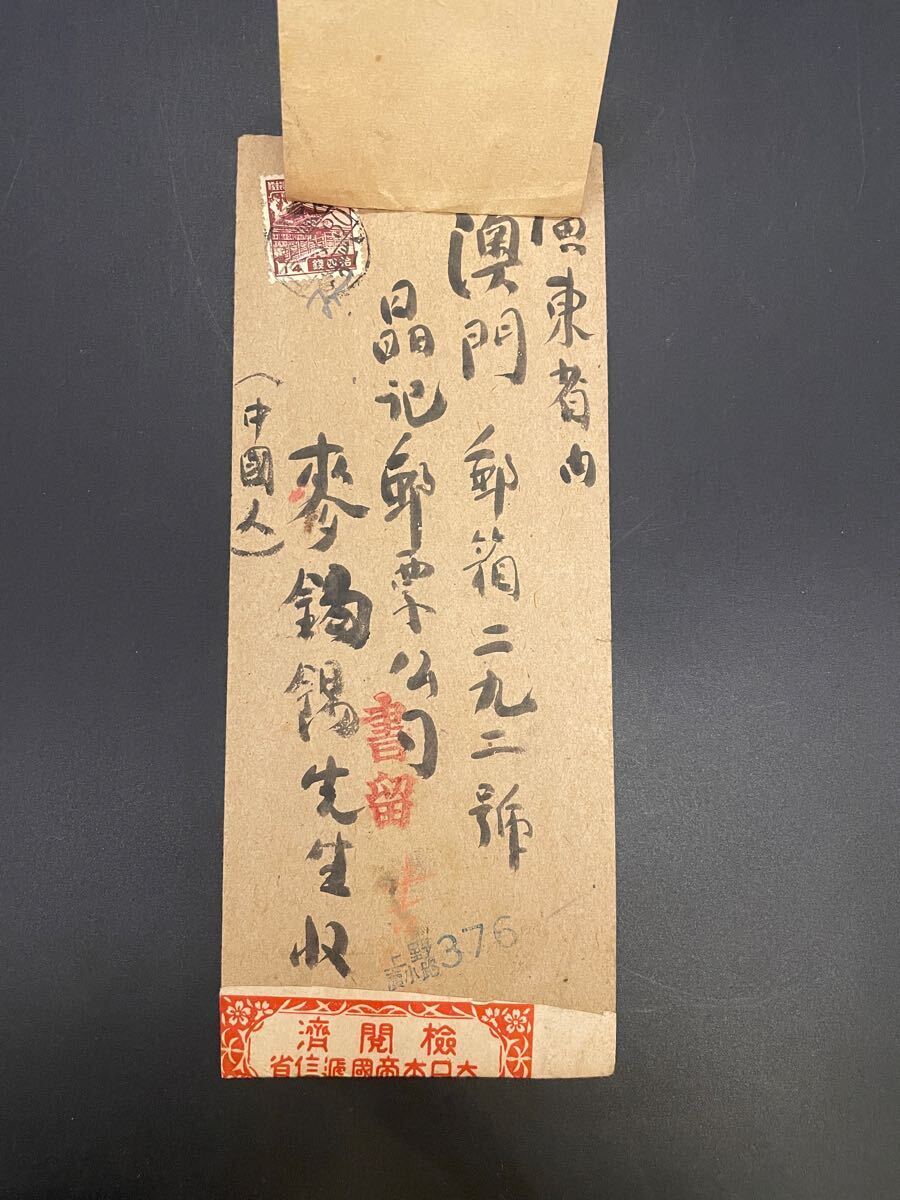 廣東省内
澳門 郵箱二九二號
晶記郵票公司
麥錫先生收
(中國人)
拾四錢
14
書留
上野
376
檢閱濟
大日本帝國遞信省